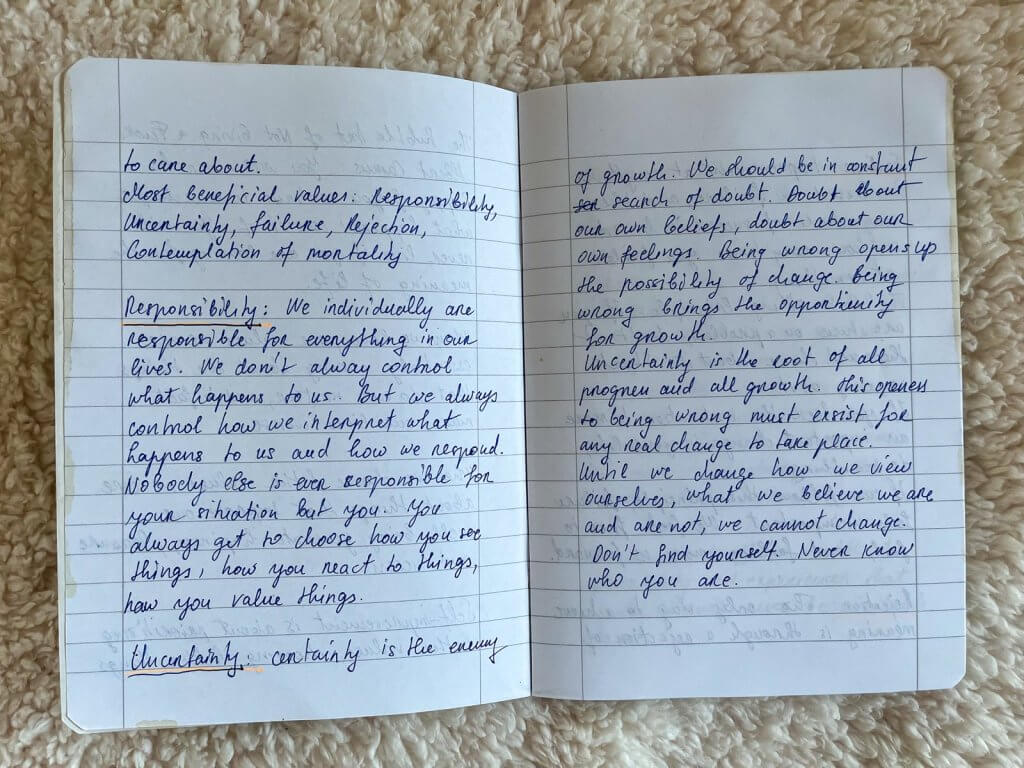 to care about.
Most beneficial values: Responsibility,
Uncertainty, failure, Rejection,
Contemplation of mortality
Responsibility: We individually are
responsible for everything in our
lives. We don't alway control
what happens to us. But we always
control how we interpret what
happens to us and how we respond.
Nobody else is ever responsible for
your situation but you. You
always get to choose how you see
things, how you react to things,
how you value things.
Uncertainty: certainty is the enemy
of growth. We should be in constant
search of doubt. Doubt about
our own beliefs, doubt about our
own feelings. Being wrong opens up
the possibility of change. Being
wrong brings the opportunity
for growth.
Uncertainty is the root of all
progress and all growth. This openess
to being wrong must exsist for
any real change to take place.
Until we change how we view
ourselves, what we believe we are
and are not, we cannot change.
Don't find yourself. Never know
who you are.